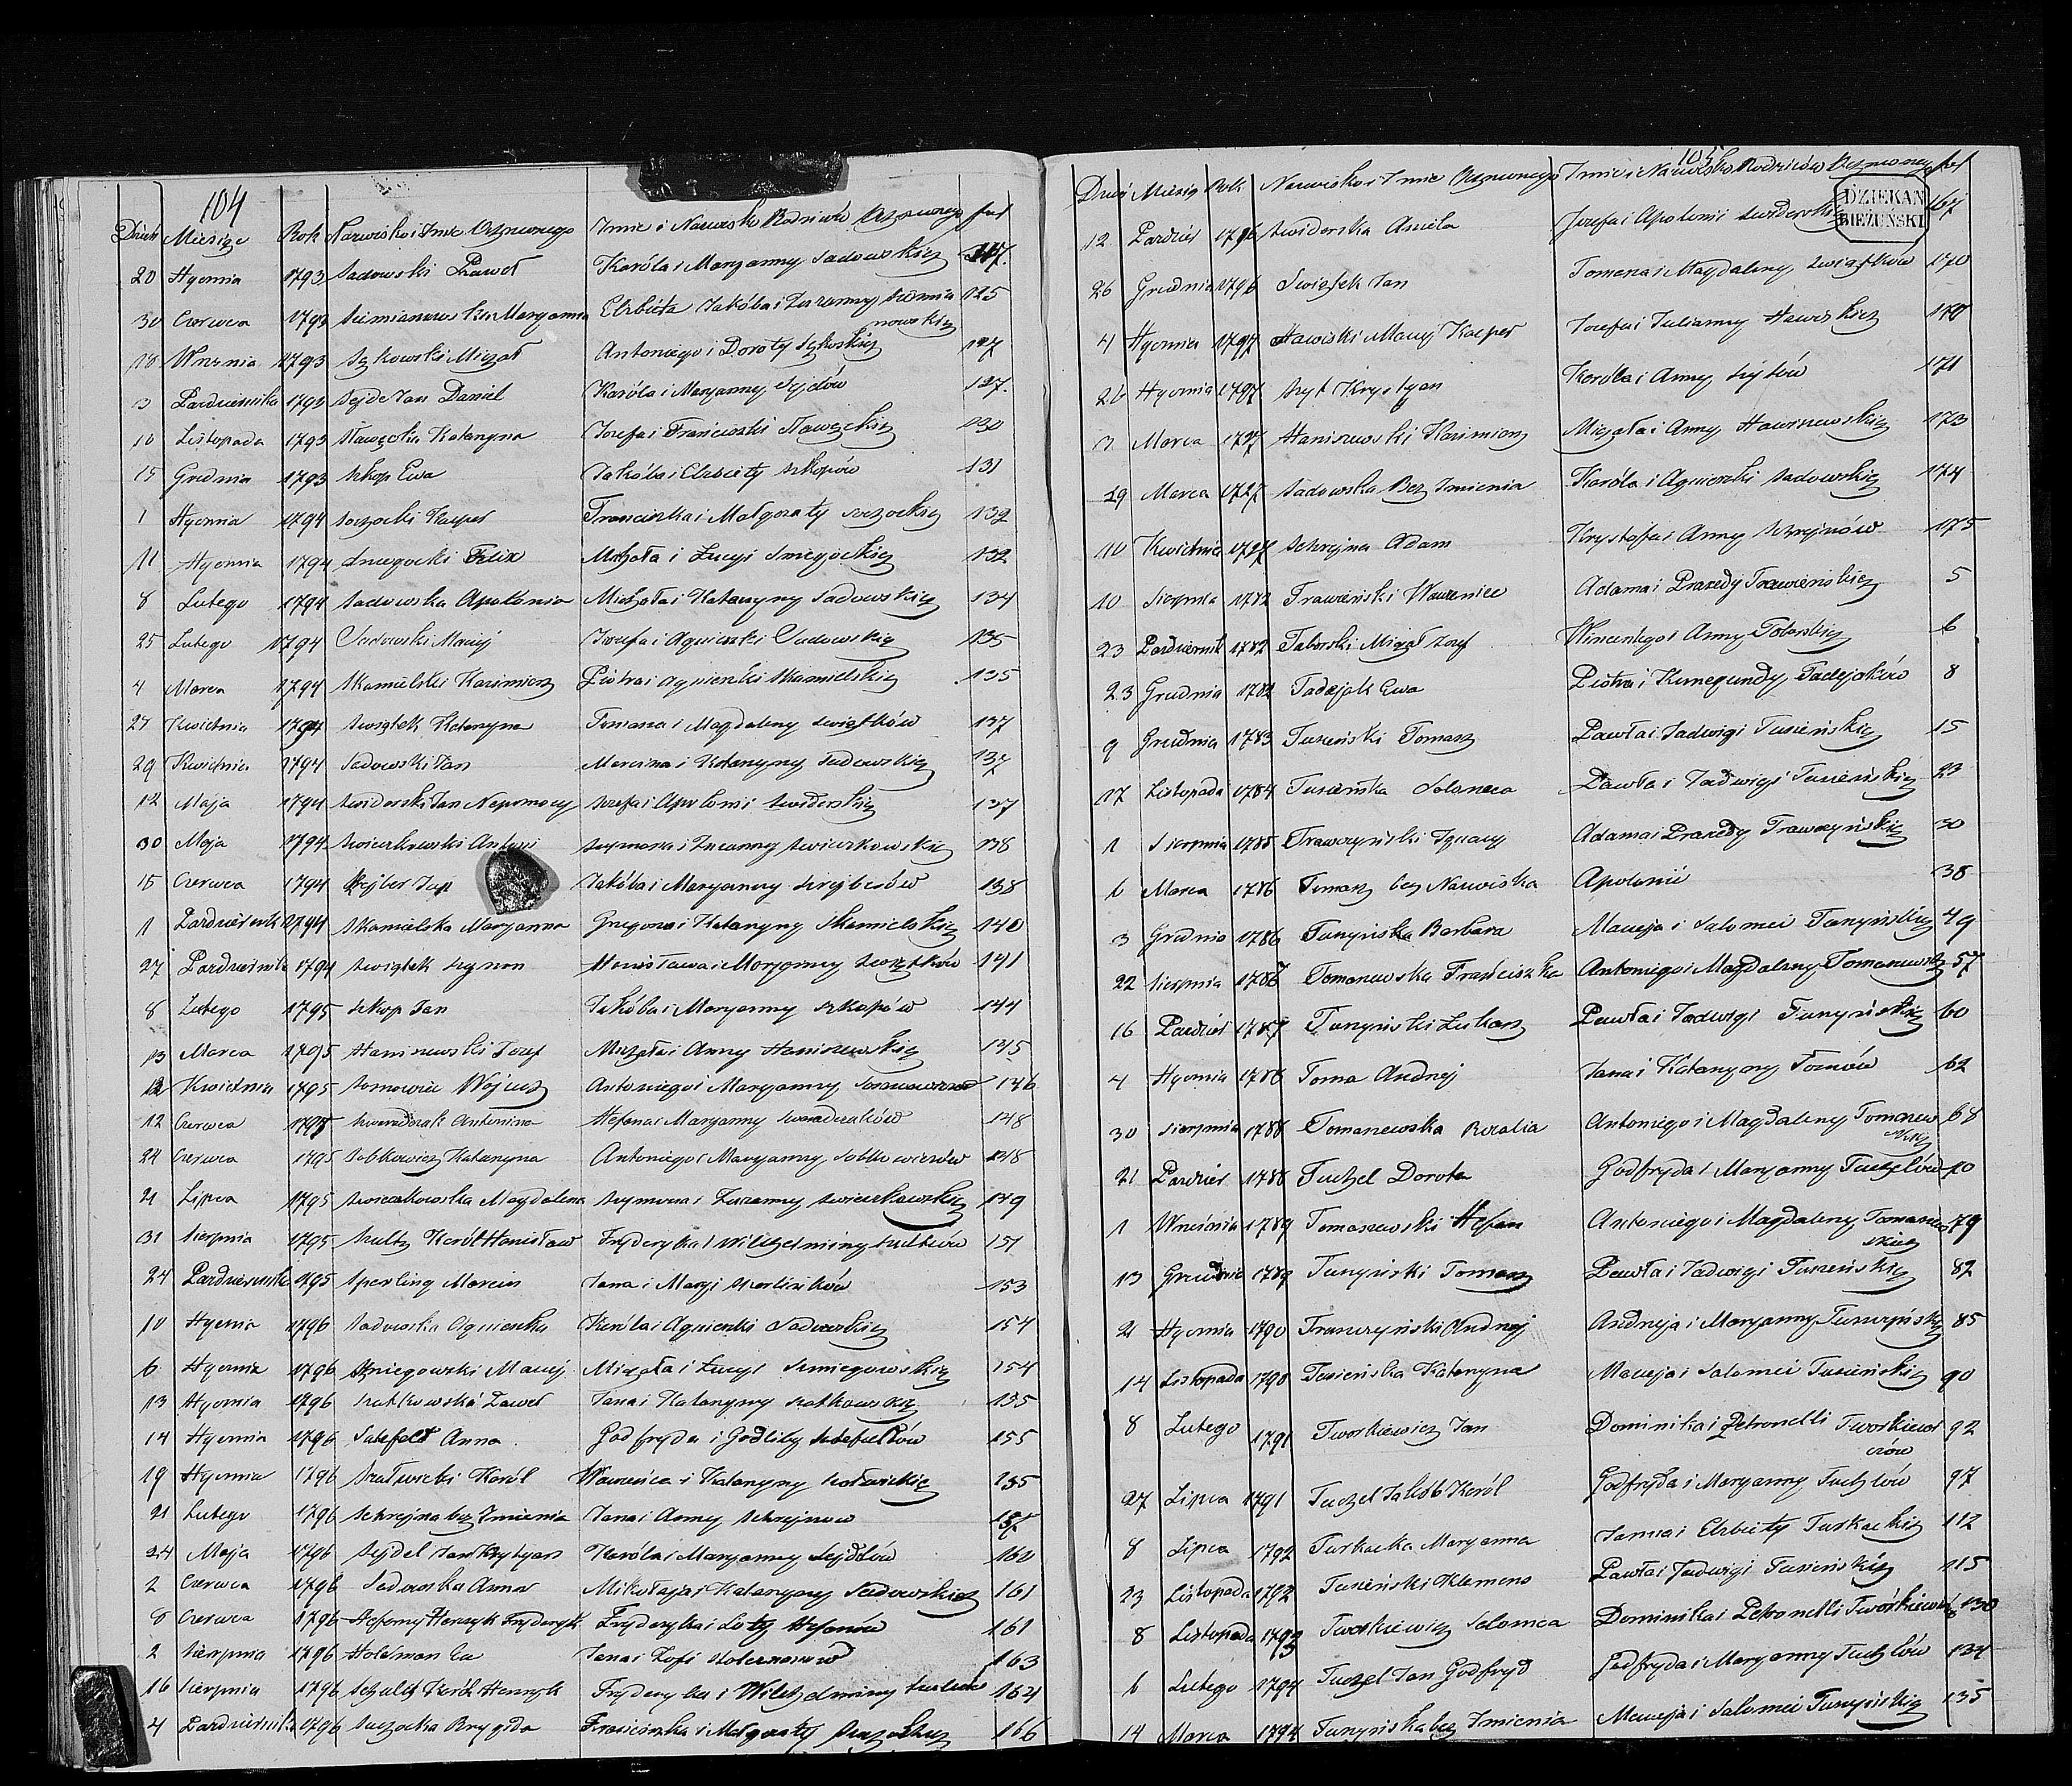 104
Dzień Miesiąc Rok Nazwisko i Imie Ochrzconego Imie i Nazwisko Rodziców Ochrzconego fol
20 Stycznia 1793 Sadowski Paweł Karóla i Maryanny Sadowskich 117.
30 Czerwca 1793 Siemianowska Maryanna Elzbieta Jakóba i Zuzanny Siemia 125
nowskich
18 Wrzesnia 1793 Szkowski Michał Antoniego i Doroty 127
3 Pazdziernika 1793 Sejde Jan Daniel Karóla i Maryanny Sejdów 127.
10 Listopada 1793 Sławęcka Katarzyna Jozefa i Franciszki Sławęckich 130
15 Grudnia 1793 Szkop Ewa Jakóba i Elzbiety Szkopów 131
1 Stycznia 1794 Soczocki Kacper Franciszka i Małgorzaty Soczockich 132
11 Stycznia 1794 Sniegocki Felix Michała i Łucyi Sniegockich 132
8 Lutego 1794 Sadowska Apolonia Michała i Katarzyny Sadowskich 134
25 Lutego 1794 Sadowski Maciej Jozefa i Agnieszki Sadowskich 135
4 Marca 1794 Skamielski Kazimierz Piotra i Agnieszki Skamielskich 135
27 Kwietnia 1794 Swiątek Katarzyna Tomasza i Magdaleny Swiątków 137
29 Kwietnia 1794 Sadowski Jan Marcina i Katarzyny Sadowskich 137
12 Maja 1794 Swiderski Jan Nepomocy Jozefa i Apolonii Swiderskich 137
30 Maja 1794 Swieczkowski Antoni Szymona i Zuzanny Swieczkowskich 138
15 Czerwca 1794 Jakóba i Maryanny Szrejberów 138
1 Pazdziernik 1794 Skamielska Maryanna Grzegorza i Katarzyny Skamielskich 140
27 Pazdziernik 1794 Swiątek Szymon Stanisława i Maryanny Swiątków 141
8 Lutego 1795 Szkop Jan Jakóba i Maryanny Szkopów 144
13 Marca 1795 Staniszewski Jozef Michała i Anny Staniszewskich 145
12 Kwietnia 1795 Somowicz Wojciech Antoniego i Maryanny 146
12 Czerwca 1795 Antonina Stefana i Maryanny 148
24 Czerwca 1795 Sobkowicz Katarzyna Antoniego i Maryanny Sobkowiczów 148
21 Lipca 1795 Swieczkowska Magdalena Szymona i Zuzanny Swieczkowskich 149
31 Sierpnia 1795 Szultz Karól Stanisław Fryderyka i Wilchelminy Szultzów 151
24 Pazdziernik 1795 Sperling Marcin Jana i Maryi 153
10 Stycznia 1796 Sadowska Agnieszka Karóla i Agnieszki Sadowskich 154
6 Stycznia 1796 Sniegowski Maciej Michała i Łucyi Sniegowskich 154
13 Stycznia 1796 Szatkowski Paweł Jana i Katarzyny Szatkowskich 155
14 Stycznia 1796 Sztefelt Anna Godfryda i Godliby 155
19 Stycznia 1796 Karól Wawrzeńca i Katarzyny 155
21 Lutego 1796 Schrejna bez Imienia Jana i Anny Schrejnow 157
24 Maja 1796 Sejdel Jan Krystyan Karóla i Maryanny Sejdlów 160
2 Czerwca 1796 Sadowska Anna Mikołaja i Katarzyny Sadowskich 161
8 Czerwca 1796 Henryk Fryderyk Fryderyka i Loty 161
2 Sierpnia 1796 Holcman Ewa Jana i Zofii 163
16 Sierpnia 1796 Schultz Karól Henryk Fryderyka i Wilchelminy 164
4 Pazdziernik 1796 Soczocka Brygida Franciszka i Małgorzaty Soczockich 166
105
Dzień Miesiąc Rok Nazwisko i Imie Ochrzconego Imie i Nazwisko Rodziców Ochrzconego fol
DZIEKAN
BIEŻUŃSKI
12 Pazdzier 1796 Swiderska Aniela Jozefa i Apolonii Swiderskich 167
26 Grudnia 1796 Swiątek Jan Tomasza i Magdaleny Swiątków 170
4 Stycznia 1797 Stawiski Maciej Kacper Jozefa i Julianny Stawiskich 170
26 Stycznia 1797 Szyt Krystyan Karóla i Anny Szytów 171
3 Marca 1797 Staniszewski Kazimierz Michała i Anny Staniszewskich 173
29 Marca 1797 Sadowska Bez Imienia Karóla i Agnieszki Sadowskich 174
10 Kwietnia 1797 Schrejna Adam Krystofa i Anny Schrejnów 175
10 Sierpnia 1782 Trawieński Wawrzeniec Adama i Praxedy Trawieńskich 5
23 Pazdziernik 1782 Taborski Michał Jozef Wincentego i Anny Taborskich 6
23 Grudnia 1782 Tadejak Ewa Piotra i Kunegundy Tadejaków 8
9 Grudnia 1783 Tuszeński Tomasz Pawła i Jadwigi Tuszeńskich 15
17 Listopada 1784 Tuszeńska Salomea Pawła i Jadwigi Tuszeńskich 23
1 Sierpnia 1785 Trawczyński Ignacy Adama i Praxedy Trawczyńskich 30
6 Marca 1786 Tomasz bez Nazwiska Apolonii 38
3 Grudnia 1786 Tuszyńska Barbara Macieja i Salomei Tuszyńskich 49
22 Sierpnia 1787 Tomaszewska Franciszka Antoniego i Magdaleny Tomaszewskich 57
16 Pazdzier 1787 Tuszyński Łukasz Pawła i Jadwigi Tuszyńskich 60
4 Stycznia 1788 Toma Andrzej Jana i Katarzyny Tomów 62
30 Sierpnia 1788 Tomaszewska Rozalia Antoniego i Magdaleny Tomaszew 68
skich
21 Pazdzier 1788 Tuchel Dorota Godfryda i Maryanny Tuchelów 70
1 Wrzesnia 1789 Tomaszewski Stefan Antoniego i Magdaleny Tomaszew 79
skich
13 Grudnia 1789 Tuszyński Tomasz Pawła i Jadwigi Tuszeńskich 82
21 Stycznia 1790 Trawczyński Andrzej Andrzeja i Maryanny 85
14 Listopada 1790 Tuszieńska Katarzyna Macieja i Salomei Tuszieńskich 90
8 Lutego 1791 Tworkiewicz Jan Dominika i Petronelli Tworkiewi 92
czów
27 Lipca 1791 Tuchel Jakób Karól Godfryda i Maryanny Tuchlów 97
8 Lipca 1792 Turkacka Maryanna Janua i Elzbiety Turkackich 112
23 Listopada 1792 Tuszeński Klemens Pawła i Jadwigi Tuszeńskich 115
8 Listopada 1793 Tworkiewicz Salomea Dominika i Petronelli Tworkiewiczów 130
6 Lutego 1794 Tuchel Jan Godfryd Godfryda i Maryanny Tuchlów 134
14 Marca 1794 Tuszyńska bez Imienia Macieja i Salomei Tuszyńskich 135